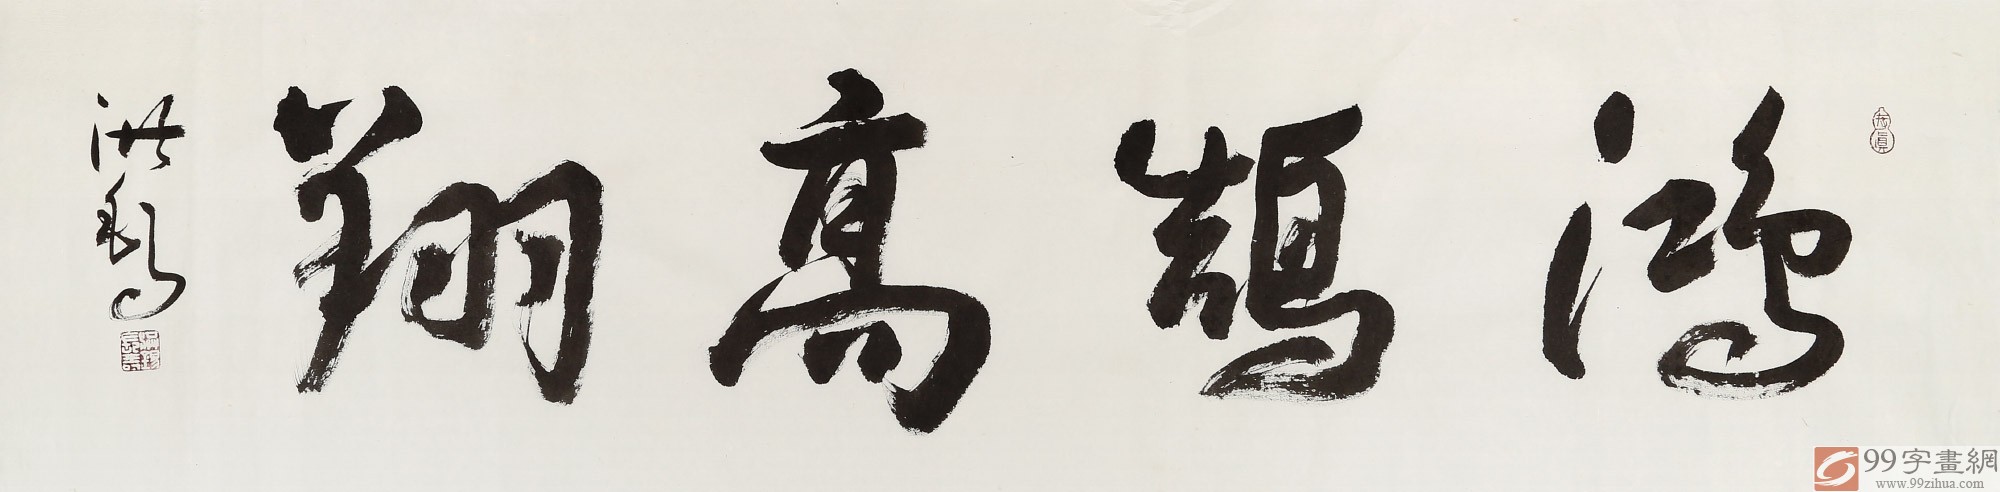 鴻鵠高翔
洪鑄
99字畫網
www.99zihua.com